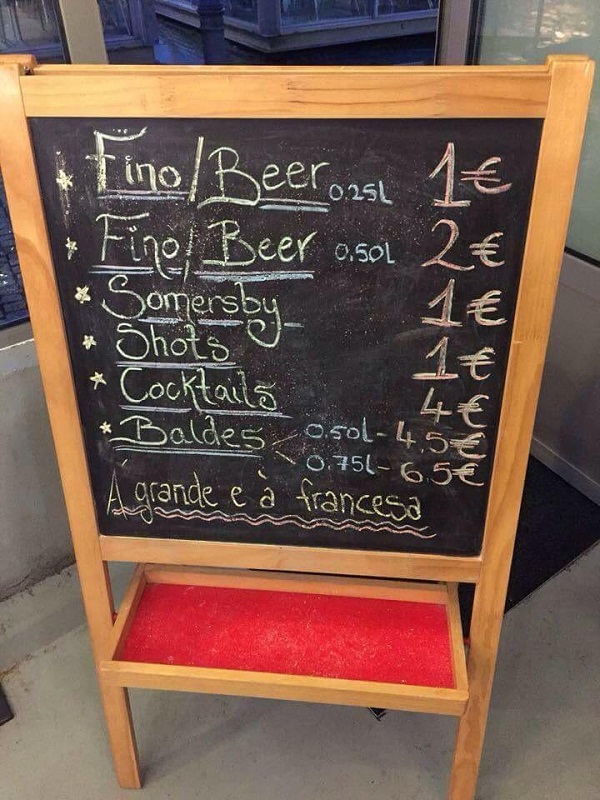 * Fino/Beer 0.25L 1€
* Fino/Beer 0.50L 2€
* Somersby 1€
* Shots 1€
* Cocktails 4€
* Baldes < 0.50l - 4.5€
0.75l - 6.5€
Á grande e à francesa